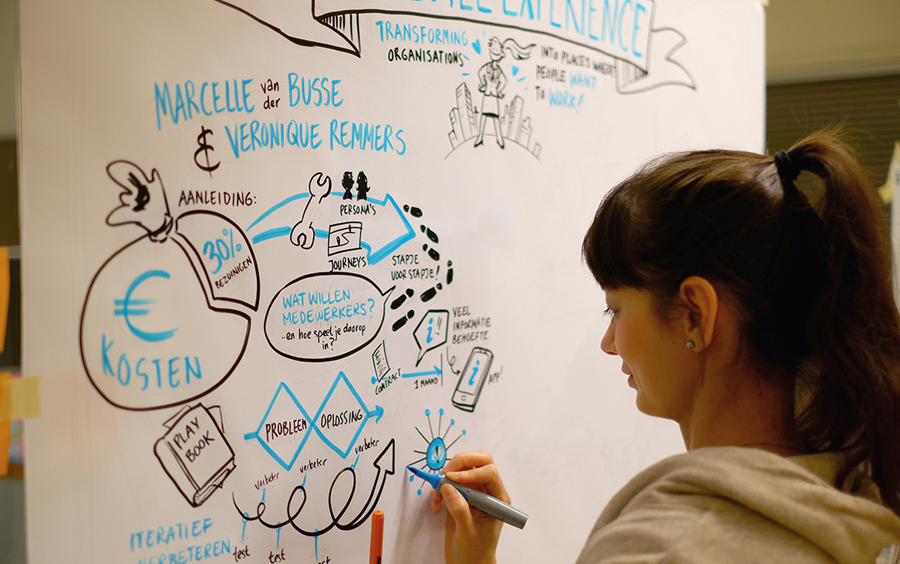 EXPERIENCE
TRANSFORMING
ORGANISATIONS
INTO PLACES WHERE
PEOPLE WANT
TO WORK!
MARCELLE van der BUSSE
& VERONIQUE REMMERS
AANLEIDING:
30%
BEZUINIGEN
€
KOSTEN
PERSONA'S
JOURNEYS
STAPJE
VOOR STAPJE!
WAT WILLEN
MEDEWERKERS?
...en hoe speel je daarop
in?
VEEL
INFORMATIE
BEHOEFTE
i
CONTRACT
1 MAAND
i
APP!
PROBLEEM
OPLOSSING
PLAY
BOOK
verbeter
verbeter
verbeter
ITERATIEF
VERBETEREN
test
test
test